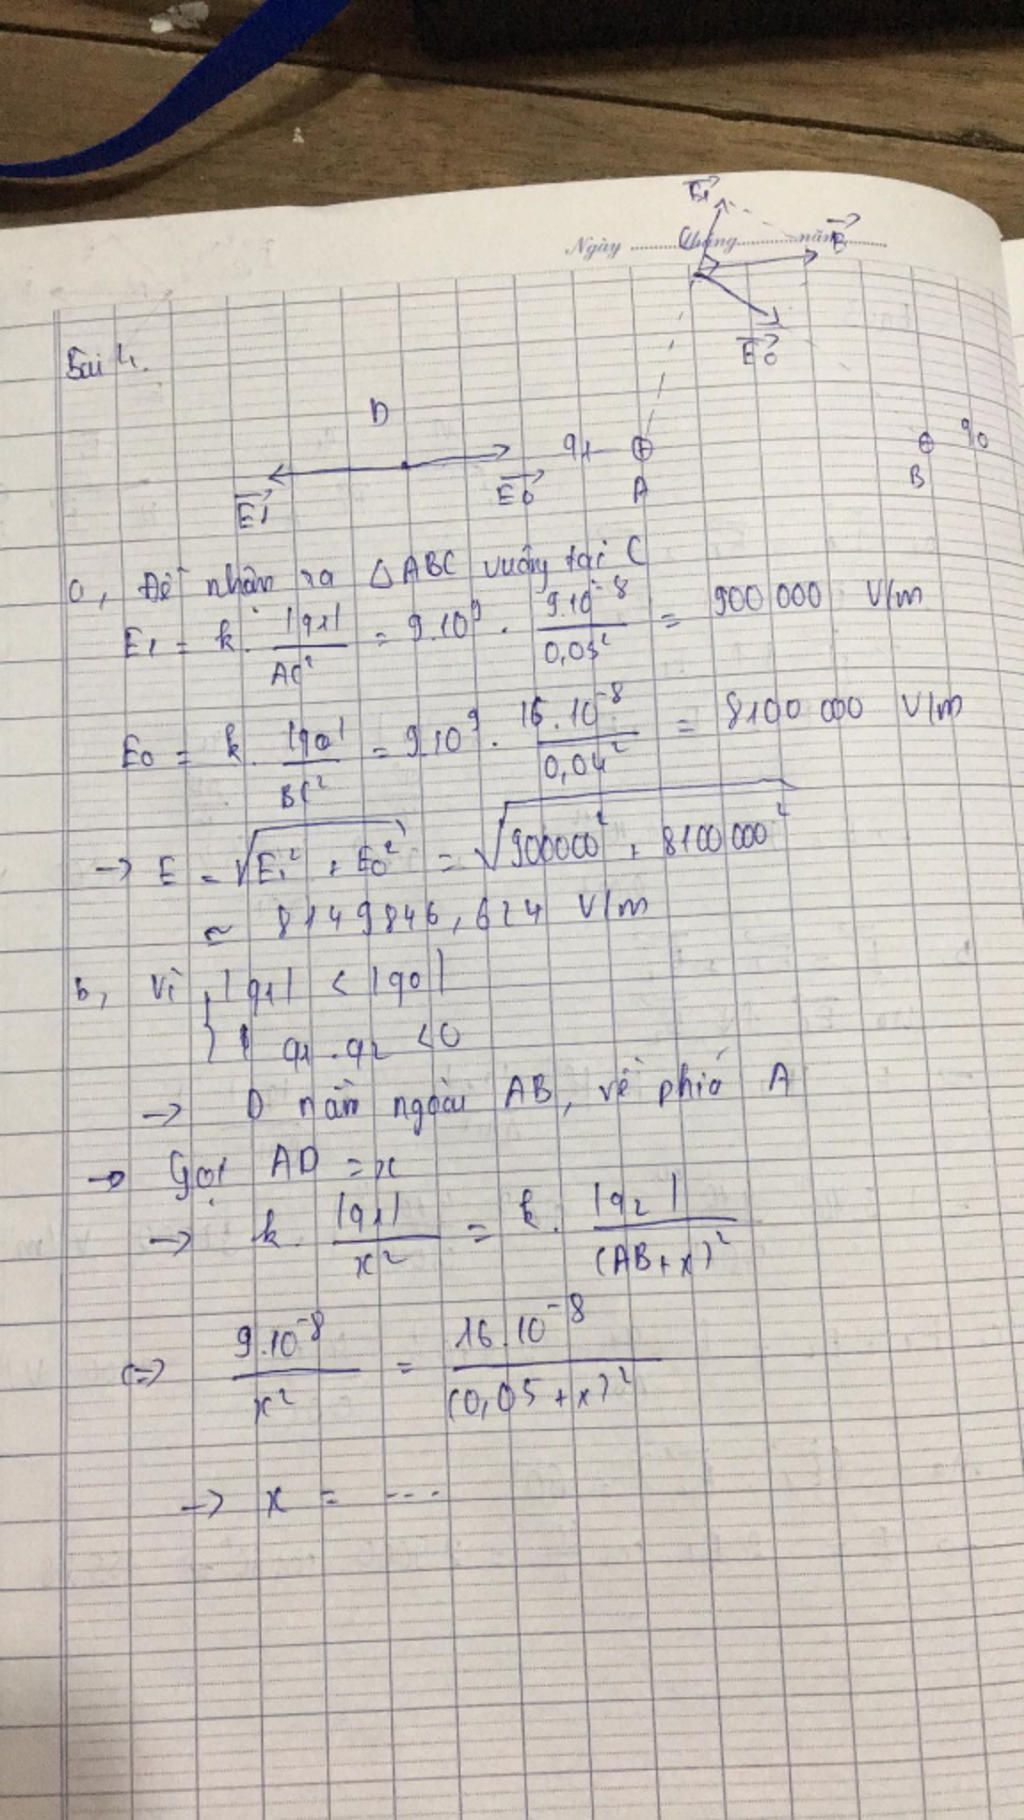 Ngày ............ tháng ............ năm ............
C
E₁→
E→
E₀→
Bài 4.
D
q₁
A
B
q₀
E₁→
E₀→
a, Dễ nhận ra △ABC vuông tại C
E₁ = k . |q₁| / AC² = 9.10⁹ . 9.10⁻⁸ / 0,03² = 900 000 V/m
E₀ = k . |q₀| / BC² = 9.10⁹ . 16.10⁻⁸ / 0,04² = 8100 000 V/m
→ E = √(E₁² + E₀²) = √(900000² + 8100 000²)
≈ 8149846,624 V/m
b, Vì { |q₁| < |q₀|
q₁ . q₂ < 0
→ D nằm ngoài AB, về phía A
→ Gọi AD = x
→ k . |q₁| / x² = k . |q₂| / (AB + x)²
⇔ 9.10⁻⁸ / x² = 16.10⁻⁸ / (0,05 + x)²
→ x = ...